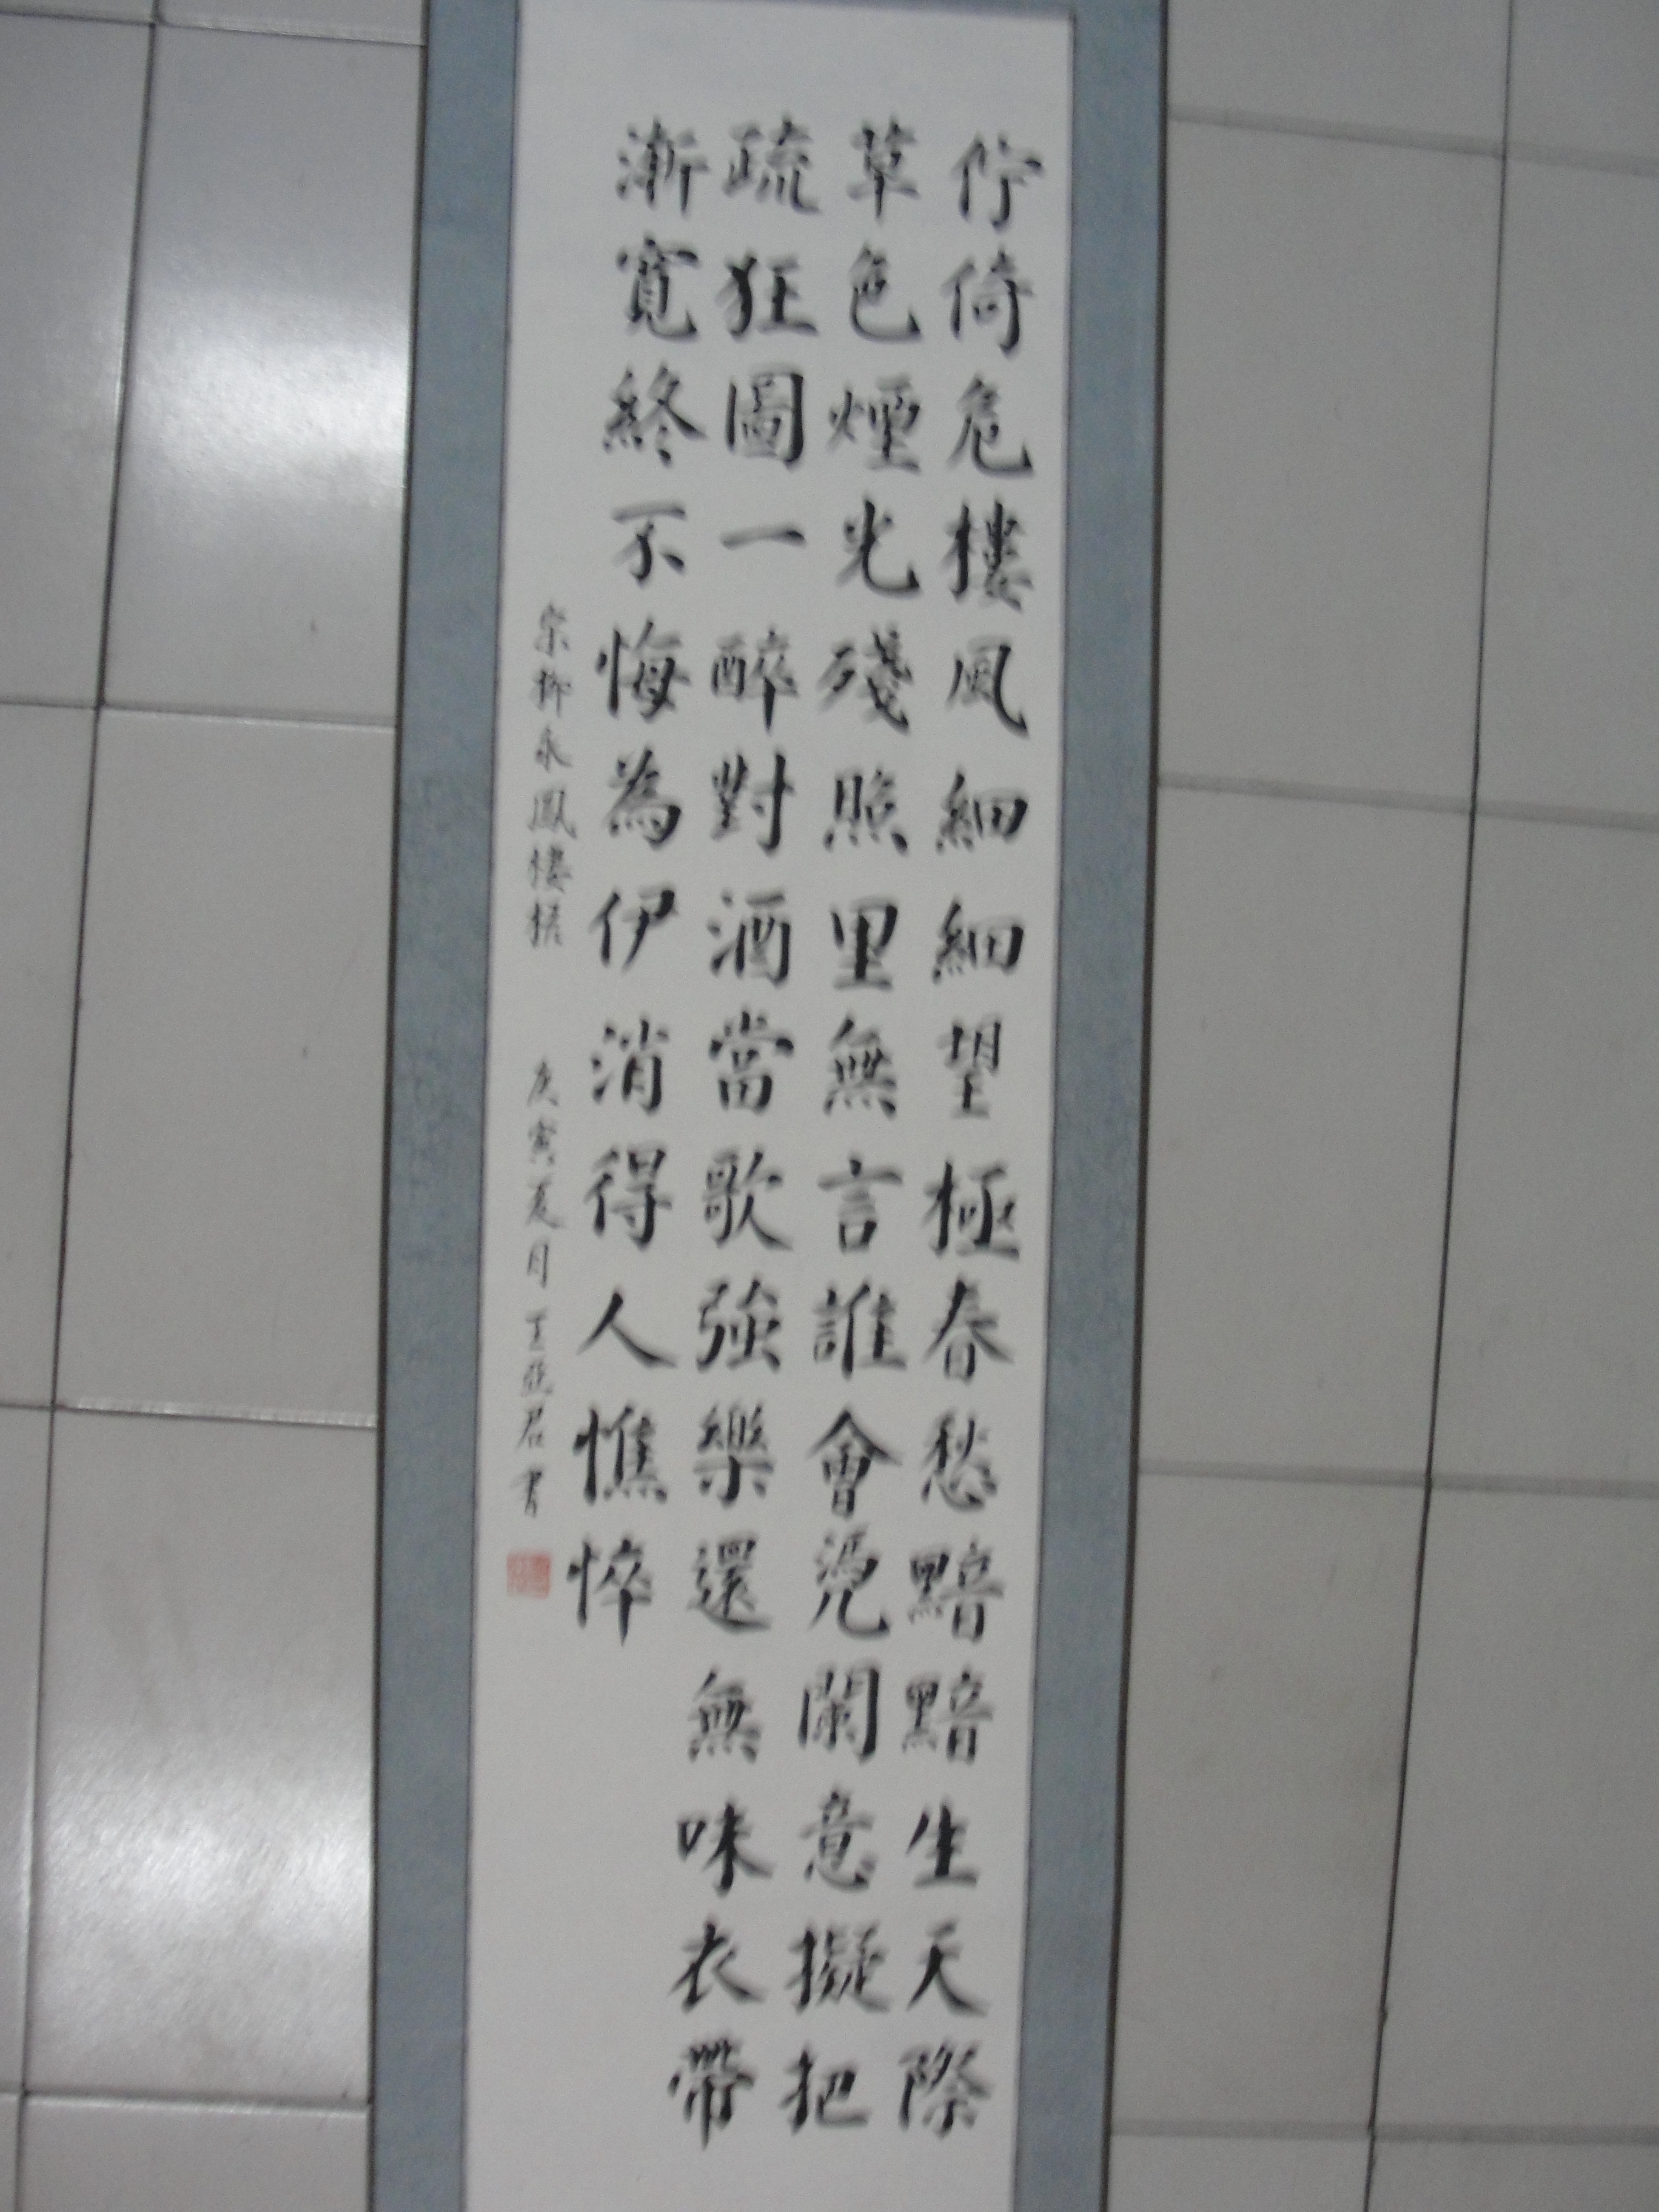 佇倚危樓風細細望極春愁黯黯生天際
草色煙光殘照里無言誰會凭闌意擬把
疏狂圖一醉對酒當歌強樂還無味衣帶
漸寬終不悔為伊消得人憔悴
宋柳永鳳樓梧 庚寅夏月 王 君書